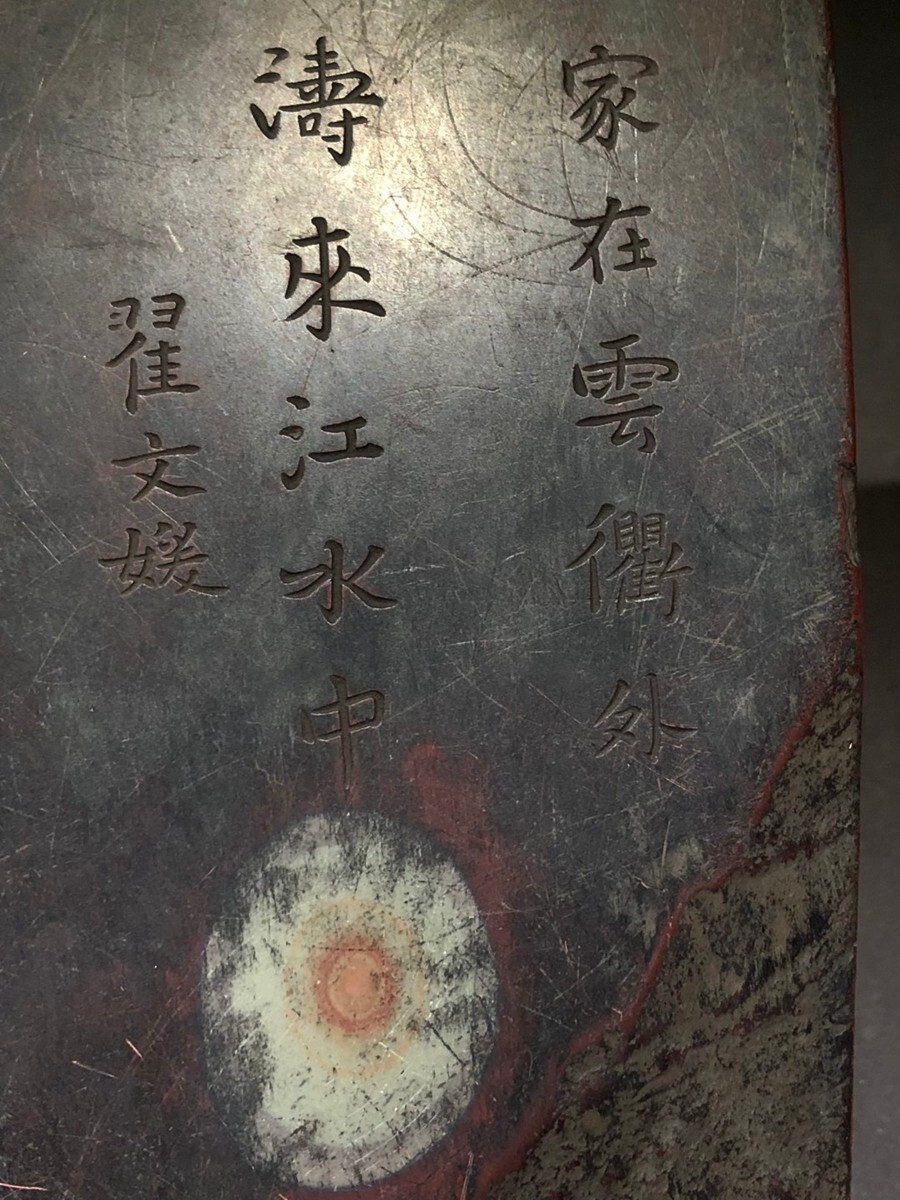 家在雲衢外
濤來江水中
翟文媛